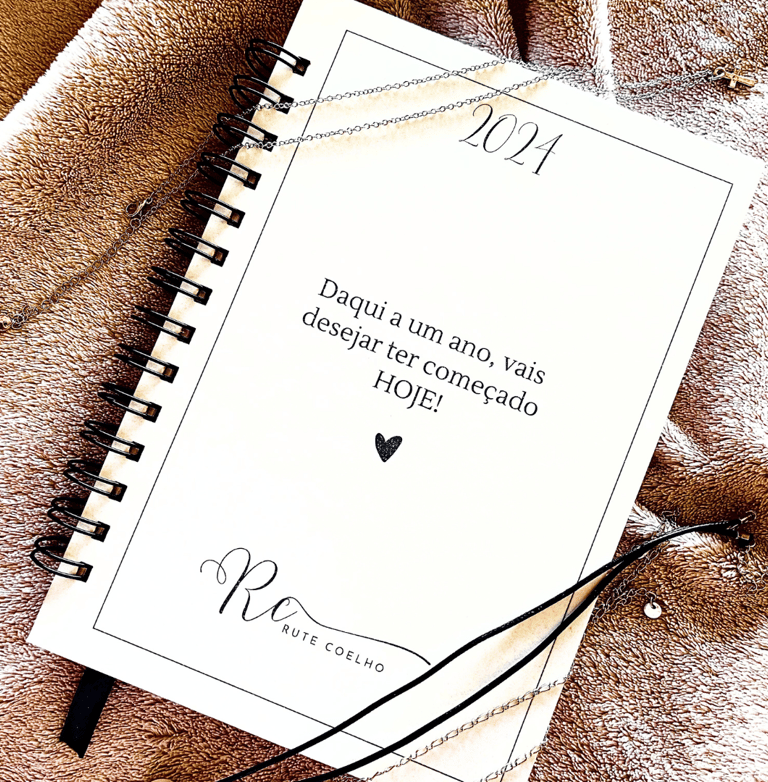 2024
Daqui a um ano, vais
desejar ter começado
HOJE!
Rc
RUTE COELHO